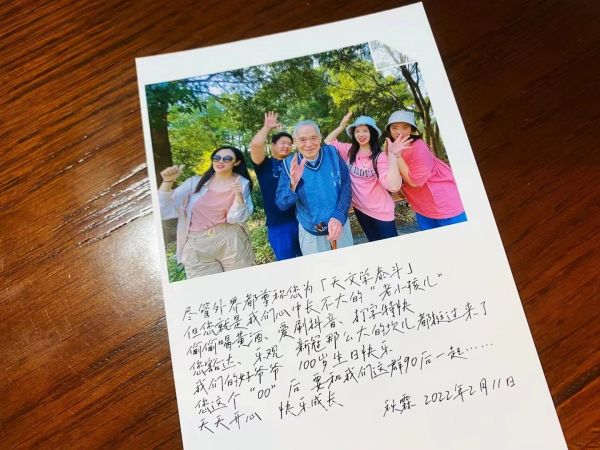 尽管外界都尊称您为「天文学泰斗」
但您就是我们心中长不大的“老小孩儿”
偷偷喝黄酒、爱刷抖音、打字特快
您豁达、乐观 新冠那么大的坎儿都挺过来了
我们的好爷爷 100岁生日快乐
您这个“00”后要和我们这群90后一起……
天天开心 快乐成长 秋霖 2022年2月11日